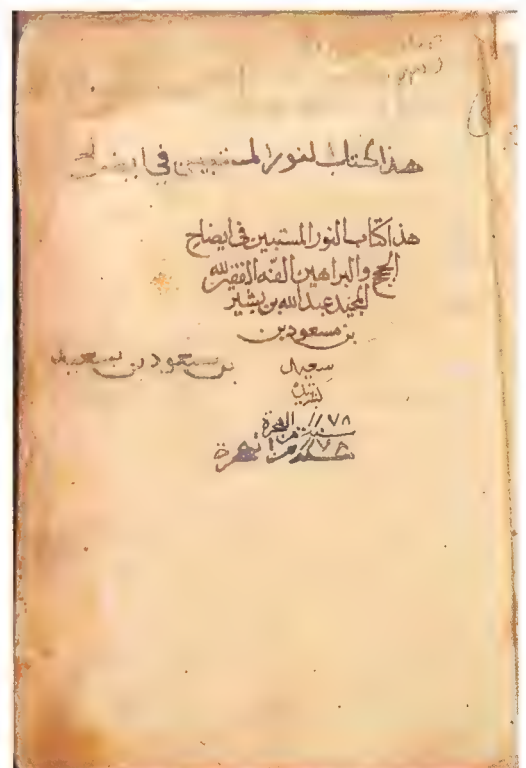 هذا كتاب لنور المستبين في ايضاح
هذا كتاب النور المستبين في ايضاح
الحجج والبراهين الفه الفقير لله
المجيد عبدالله بن بشير
بن مسعود بن
سعيد
بن سعود بن سعيد
سنة ١١٧٨ من الهجرة
سنة ١١٧٨ من الهجرة